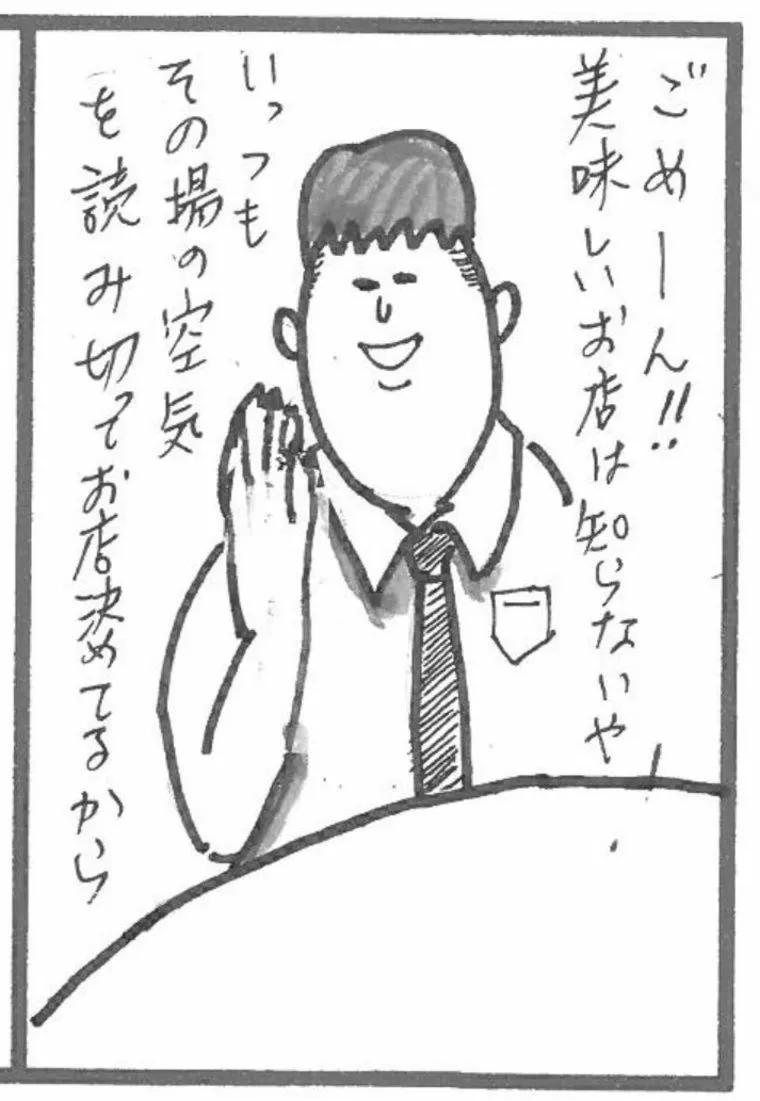 ごめーん!!
美味しいお店は知らないや
いっつも
その場の空気
を読み切ってお店決めてるから